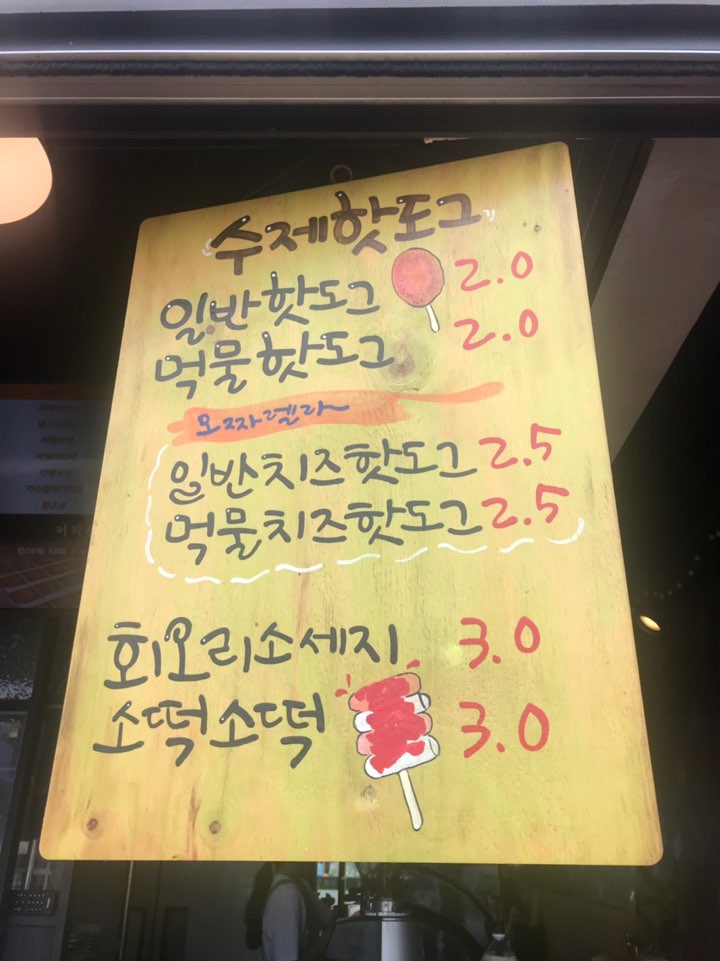 수제핫도그
일반핫도그 2.0
먹물핫도그 2.0
모짜렐라
일반치즈핫도그 2.5
먹물치즈핫도그 2.5
회오리소세지 3.0
소떡소떡 3.0